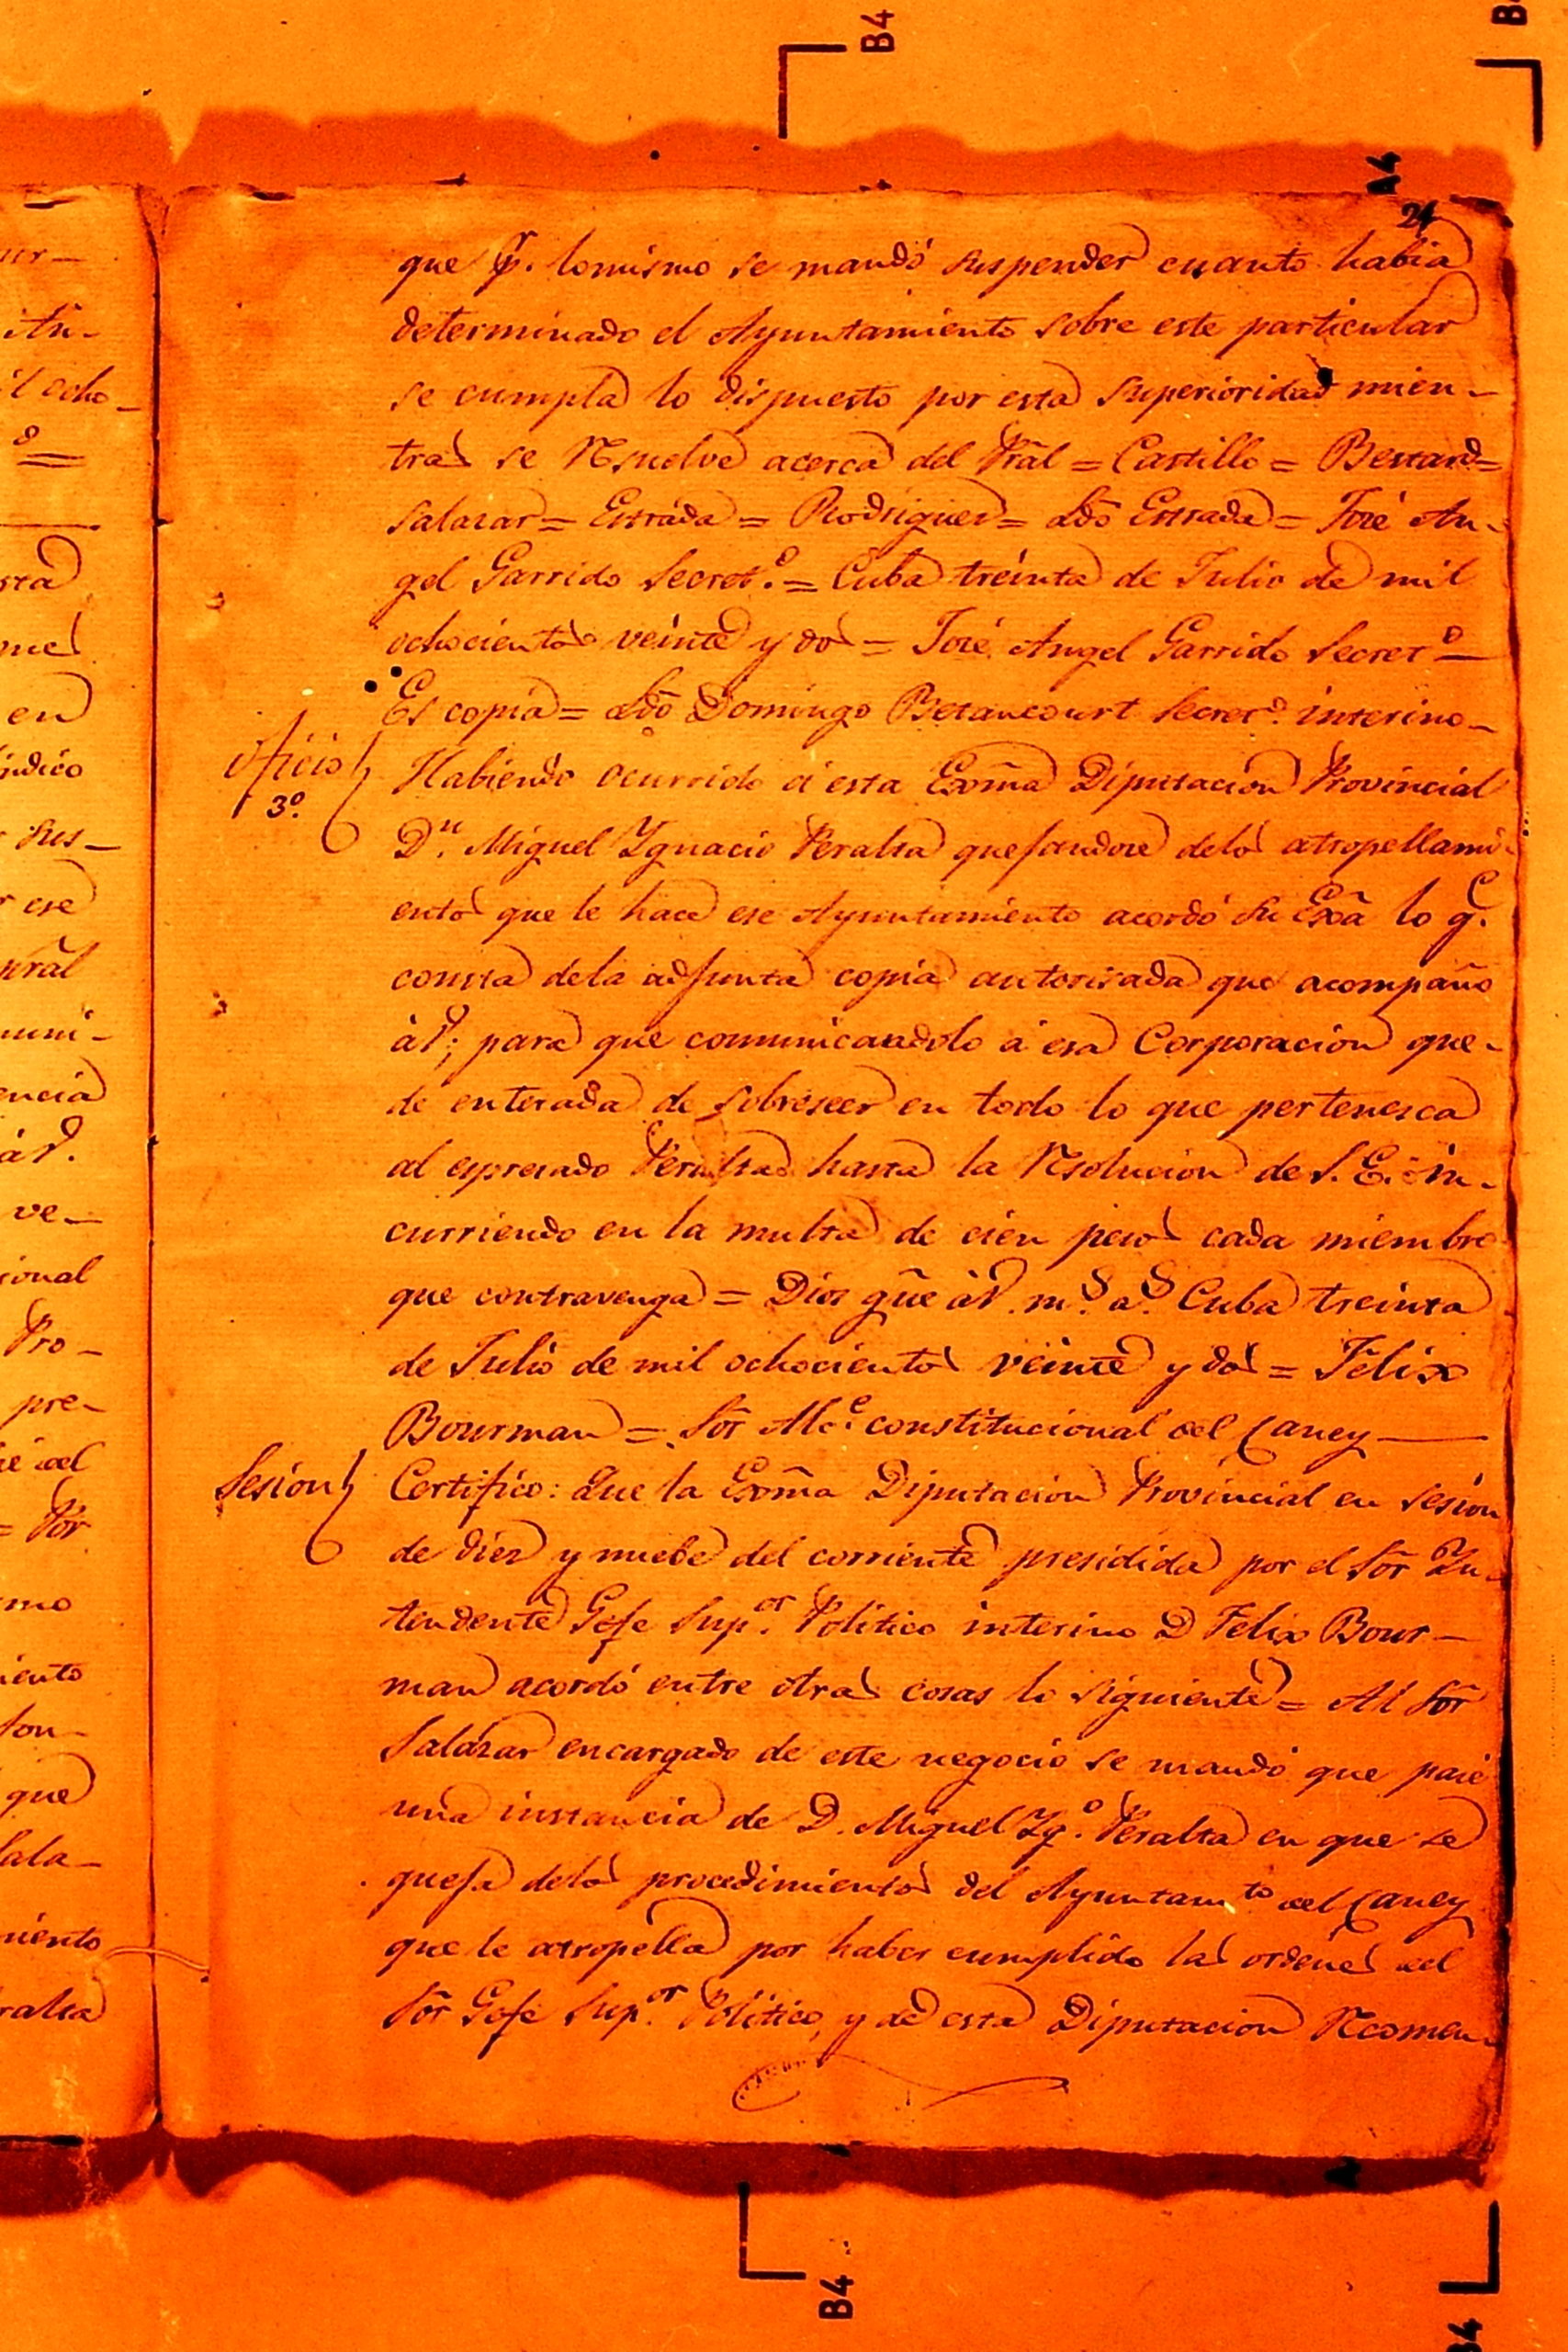 B4
B4
A4
24
que pr. lo mismo se mandó suspender cuanto habia
determinado el Ayuntamiento sobre este particular
se cumpla lo dispuesto por esta Superioridad mien-
tras se Rsuelve acerca del Pral = Castillo = Bestard =
Salazar = Estrada = Rodriguez = Ldo Estrada = José An-
gel Garrido Secreto. = Cuba treinta de Julio de mil
ochocientos veinte y dos = José Angel Garrido Secreto —
Es copia = Ldo Domingo Betancourt Secreto. interino —
Oficio
3o.
Habiendo ocurrido á esta Exma Diputacion Provincial
Dn. Miguel Ygnacio Peralta quejandose delos atropellami-
entos que le hace ese Ayuntamiento acordó Su Exa lo qe.
consta dela adjunta copia autorisada que acompaño
à V; para que comunicandolo á esa Corporacion que-
de enterada de sobreseer en todo lo que pertenesca
al espresado Peralta hasta la Rsolucion de S. E. in-
curriendo en la multa de cien pesos cada miembro
que contravenga = Dios gũe à V. ms. as. Cuba treinta
de Julio de mil ochocientos veinte y dos = Felix
Bourman = Sõr Ale. constitucional del Caney —
Sesion
Certifico: Que la Exma Diputacion Provincial en sesion
de diez y nuebe del corriente presidida por el Sõr Yn-
tendente Gefe Supor. Politico interino D Felix Bour-
man acordó entre otras cosas lo siguiente = Al Sõr
Salazar encargado de este negocio se mandó que pase
una instancia de D. Miguel Ygo. Peralta en que se
queja delos procedimientos del Ayuntamto del Caney
que le atropella por haber cumplido las ordenes del
Sõr Gefe Supor. Politico, y de esta Diputacion Rcomen-
B4